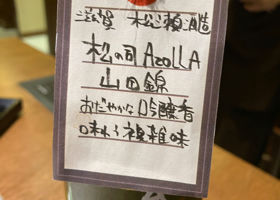 滋賀 松瀬酒造
松の司 AZOLLA
山田錦
おだやかな吟醸香
味わう複雑味